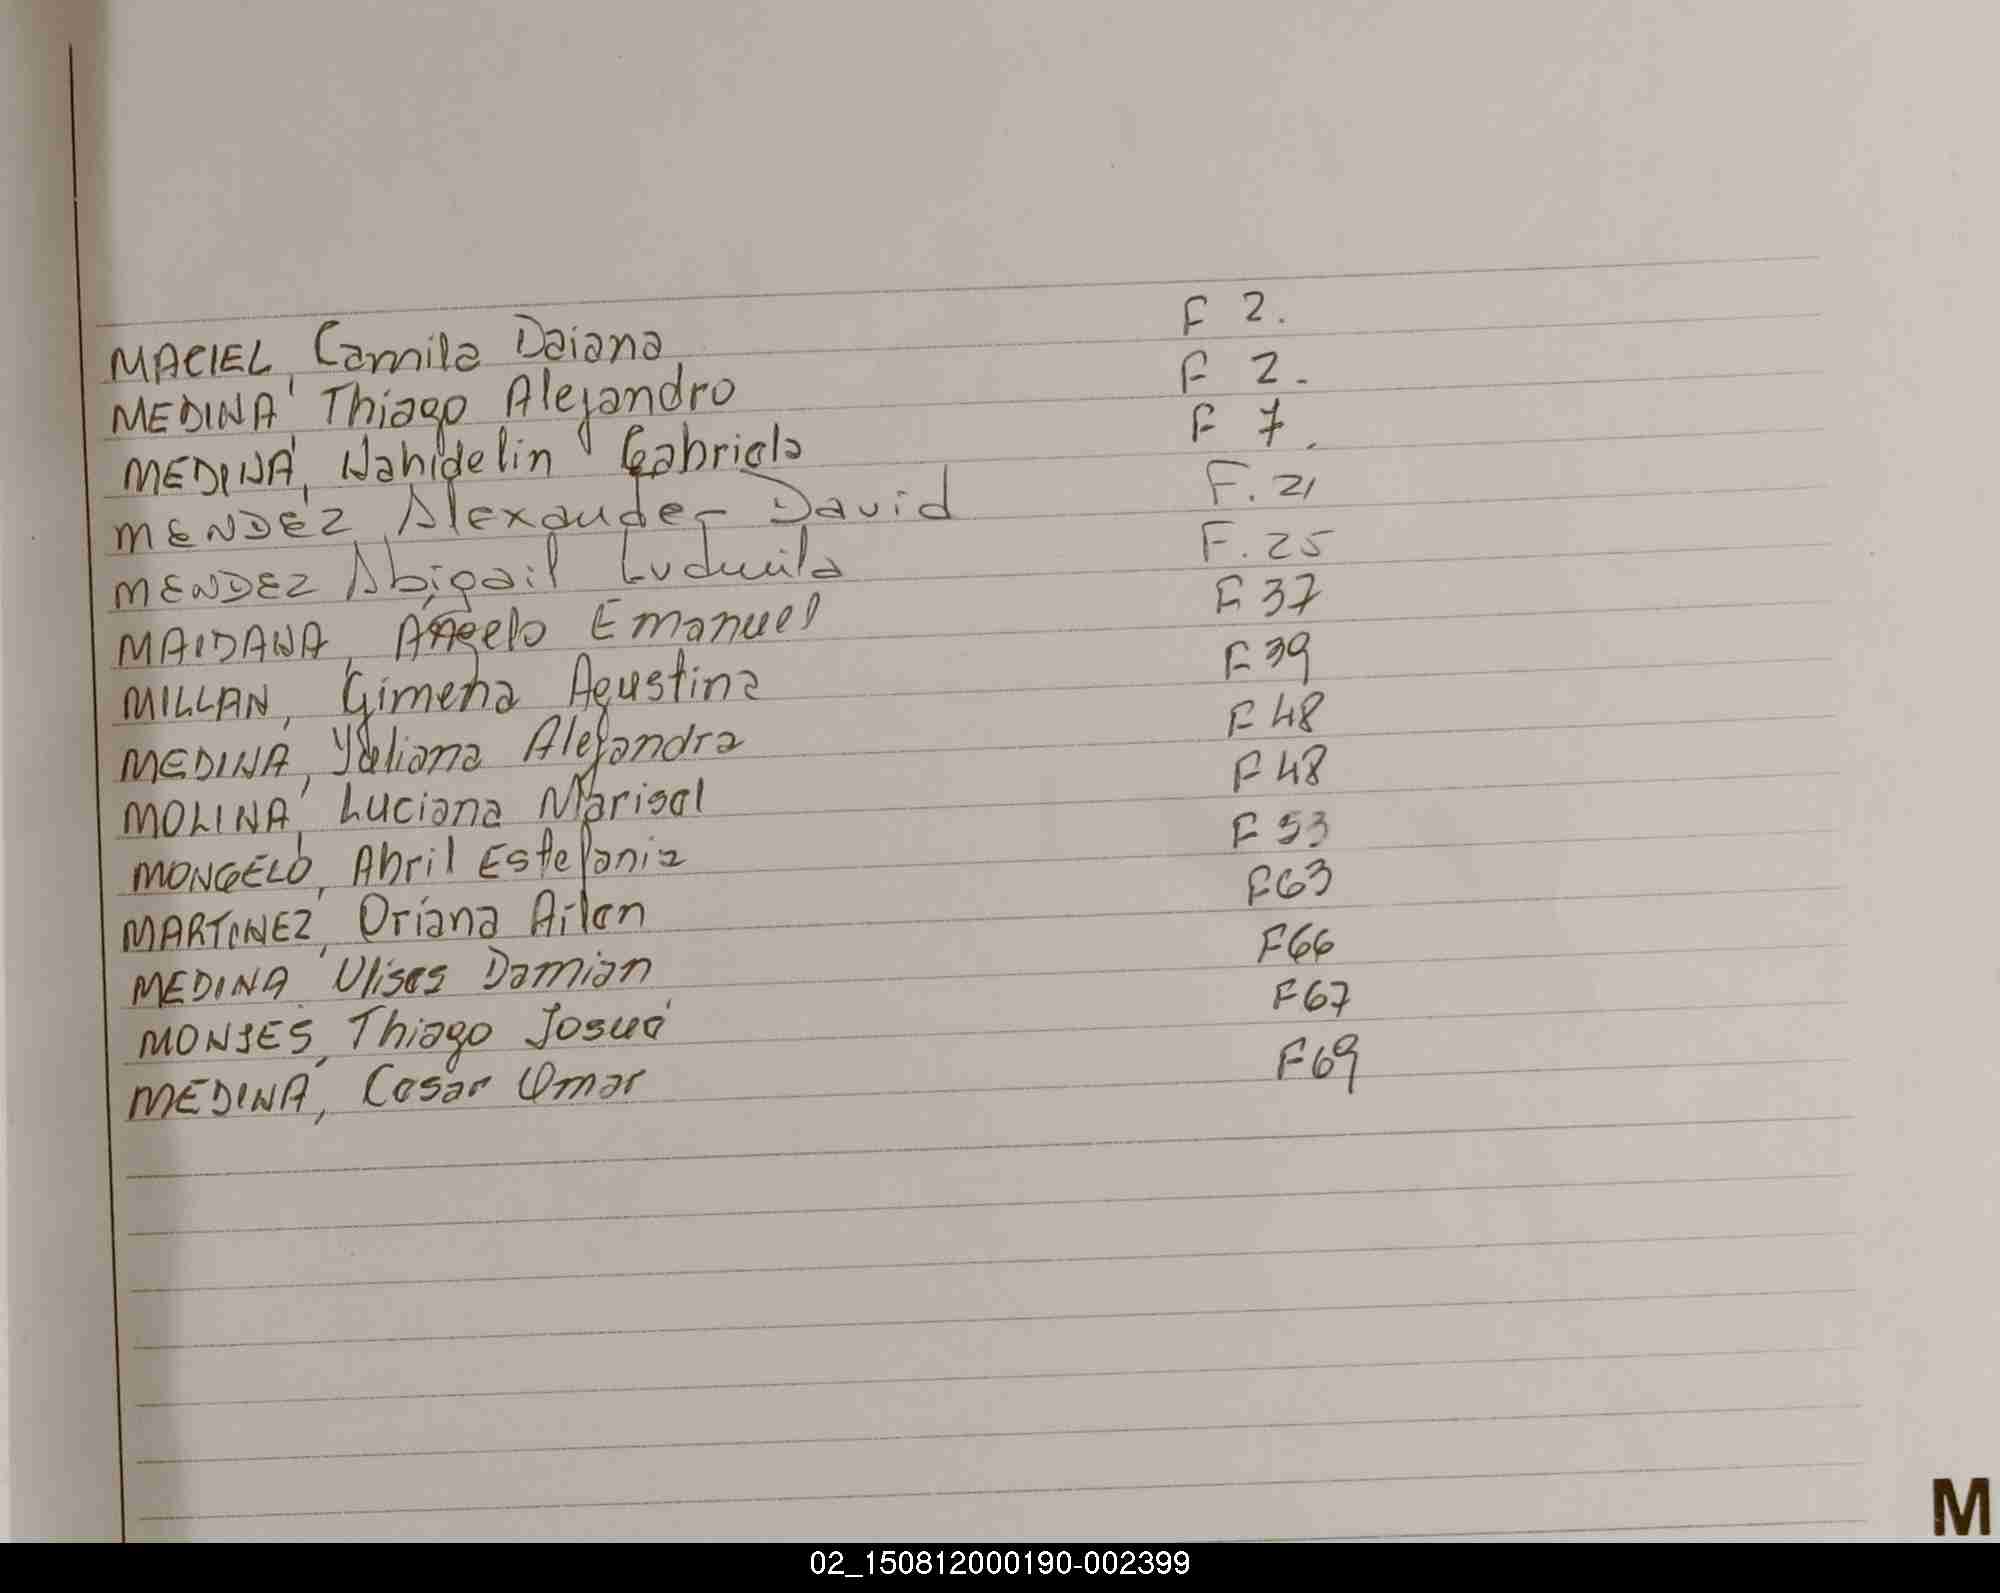 MACIEL, Camila Daiana F 2.
MEDINA, Thiago Alejandro F 2.
MEDINA, Nahidelin Gabriela F 7.
MENDEZ, Alexander David F. 21
MENDEZ Abigail Ludmila F. 25
MAIDANA, Angelo Emanuel F 37
MILLAN, Gimena Agustina F 39
MEDINA, Yuliana Alejandra F 48
MOLINA, Luciana Marisol F 48
MONGELO, Abril Estefania F 53
MARTINEZ, Oriana Ailen F63
MEDINA Ulises Damian F66
MONJES, Thiago Josué F67
MEDINA, Cesar Omar F69
M
02_150812000190-002399